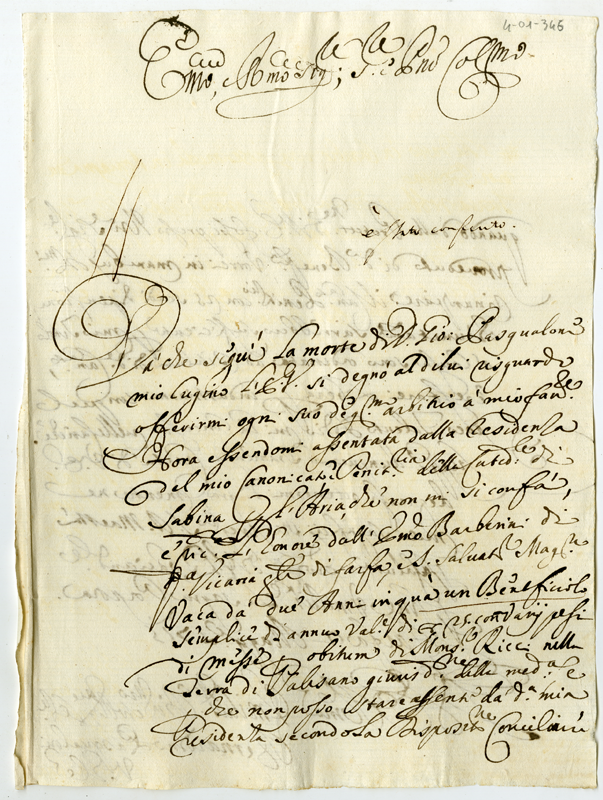 4-01-346
Emo, e Rmo Sig.re, Sig.re e Pne Colmo
è stato conferito.
Già che seguì la morte di D. Gio: Pasqualone
mio Cugino l'E.V. si degnò al di lui risguardo
offerirmi ogni suo deg.mo arbitrio à mio fau.re
Hora essendomi assentata dalla Residenza
del mio Canonicato Penit.ria della Cated.le di
Sabina l'Aria, che non mi si confà,
l'Honore dall' Emo Barberini di
Vicario di farfa, e S. Salvat.re Mag.re
Vaca da due Anni in quà un Beneficiolo
semplice di annuo Val.e di 25. con varij pesi
di Messe obitum di Mons.r Ricci nella
Terra di Salisano giurisd.ne delle med.e
che non posso stare assente da d.a mia
Residenza secondo la Disposit.ne Conciliare